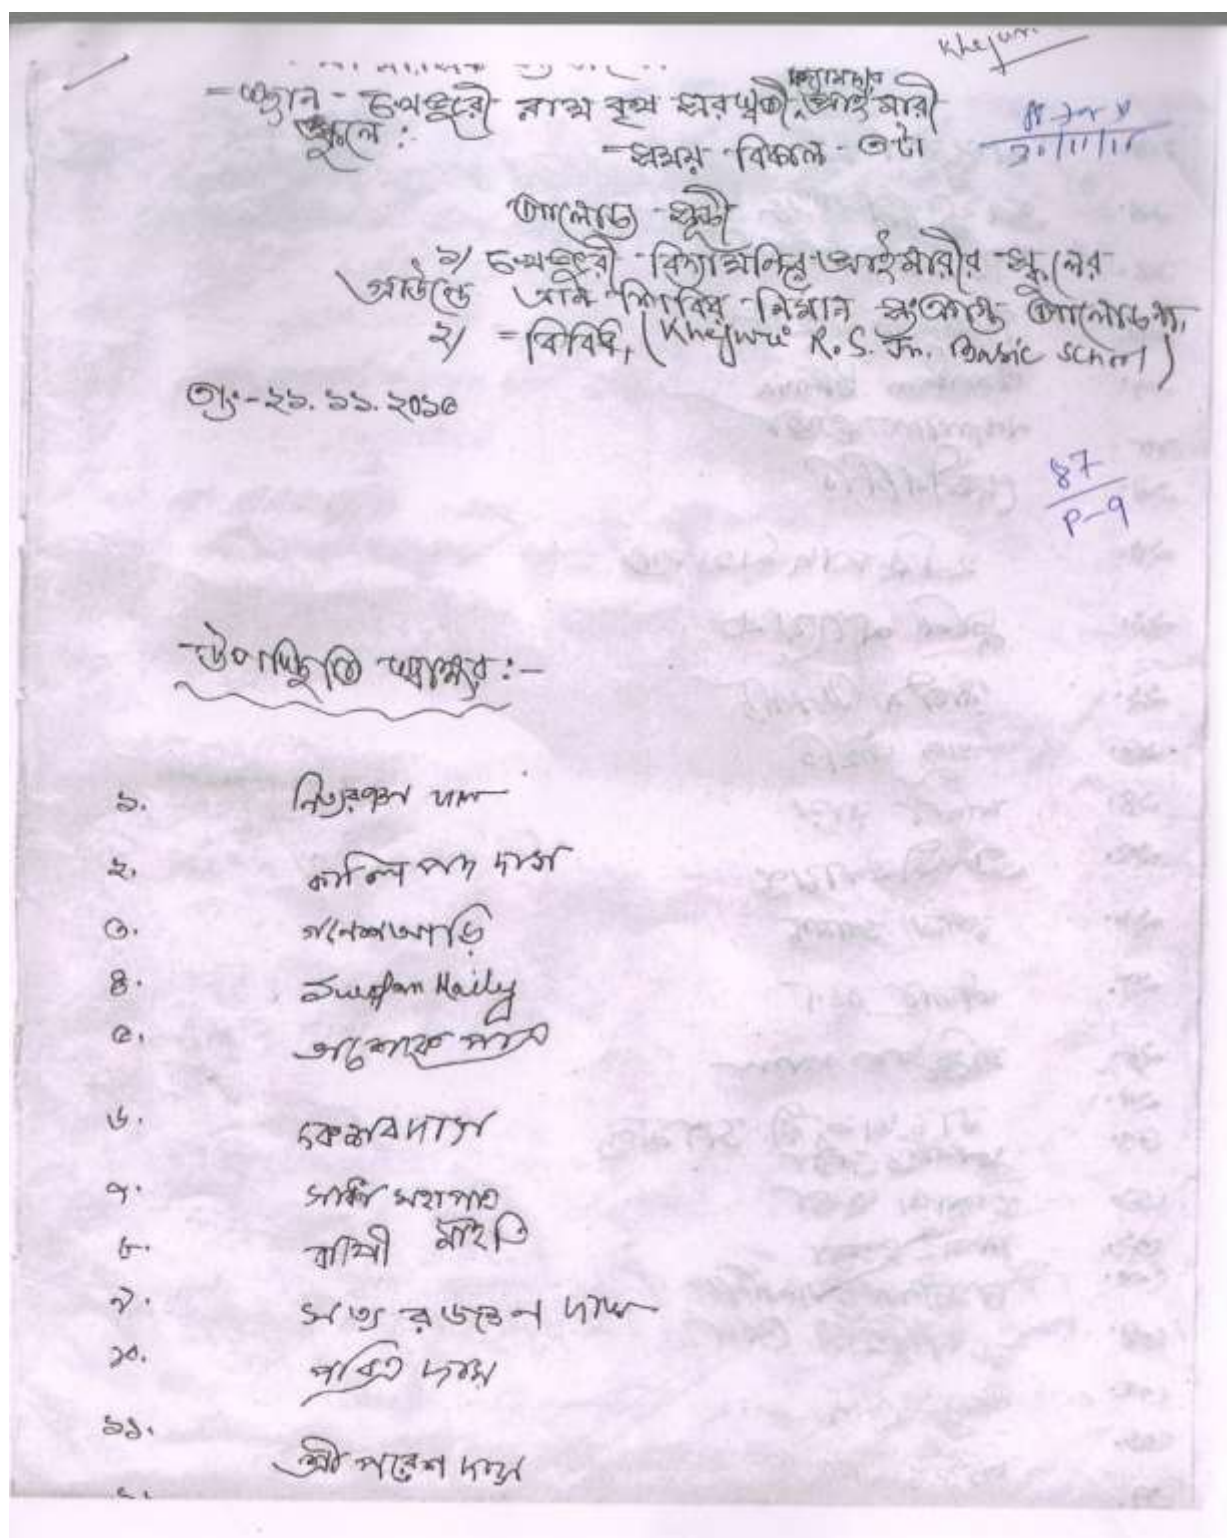 Khejuri
স্থান - খেজুরী রাম কৃষ্ণ সরস্বতী বিদ্যামন্দির প্রাইমারী
স্কুলে :
সময় বিকাল ৩টা
আলোচ্য সূচী
১/ খেজুরী বিদ্যামন্দির প্রাইমারীর স্কুলের
গ্রাউন্ডে ত্রান শিবির নির্মান সংক্রান্ত আলোচনা,
২/ বিবিধ, (Khejuri R.S. Jn. Basic School)
তাং-২১.১১.২০১৫
87
P-9
উপস্থিতি স্বাক্ষর :-
১. নিত্যরঞ্জন দাস
২. কালিপদ দাস
৩. গনেশ আড়ি
৪. Maity
৫. অশোক
৬. কেশব দাস
৭. মহাপাত্র
৮. রাখী মাইতি
৯. সত্য রঞ্জন দাস
১০. পবিত্র দাস
১১. শ্রী পরেশ দাস